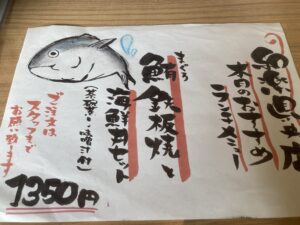 本日のおすすめ
ランチメニュー
まぐろ
鮪鉄板焼と
海鮮丼セット
(茶碗蒸し・味噌汁付)
ご注文は
スタッフまで
お願い致します
1350円